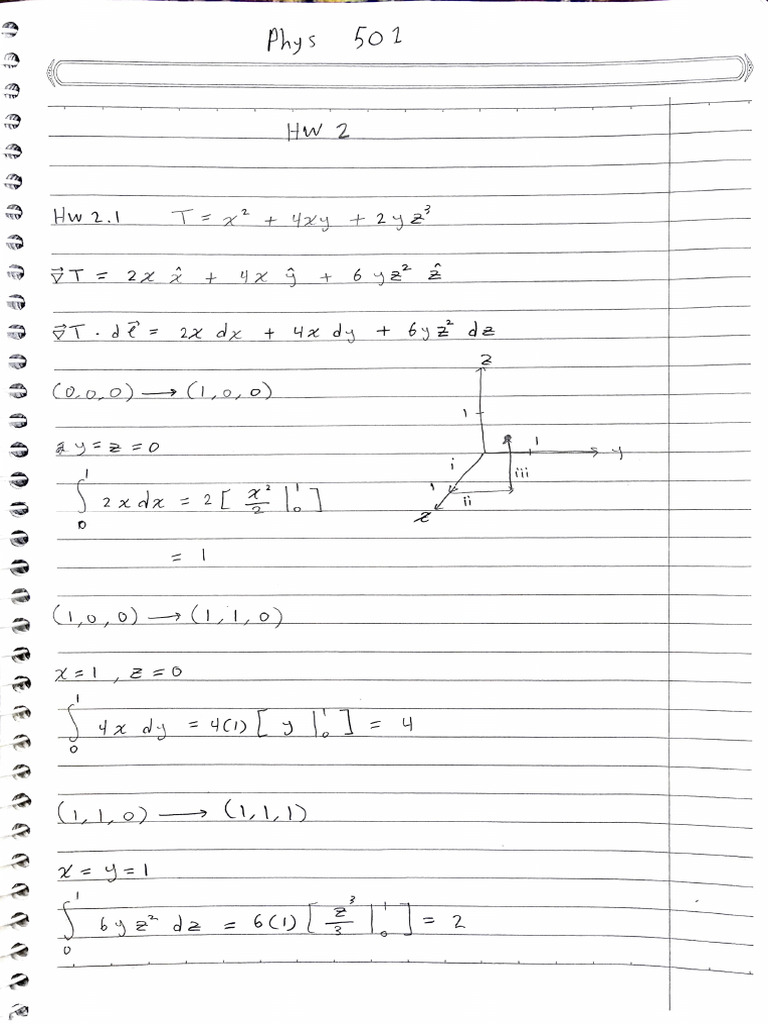 Phys 501
HW 2
HW 2.1 T = x² + 4xy + 2yz³
∇⃗T = 2x x̂ + 4x ŷ + 6yz² ẑ
∇⃗T · dℓ⃗ = 2x dx + 4x dy + 6yz² dz
(0,0,0) ⟶ (1,0,0)
y = z = 0
∫₀¹ 2x dx = 2 [ x²/2 |₀¹ ]
= 1
z
1
i
1
y
iii
1
ii
x
(1,0,0) ⟶ (1,1,0)
x = 1 , z = 0
∫₀¹ 4x dy = 4(1) [ y |₀¹ ] = 4
(1,1,0) ⟶ (1,1,1)
x = y = 1
∫₀¹ 6yz² dz = 6(1) [ z³/3 |₀¹ ] = 2